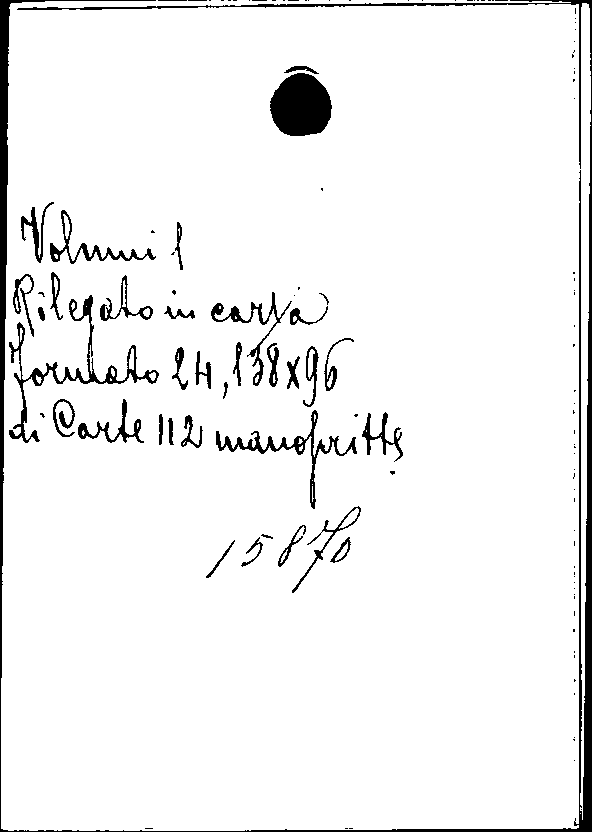 Volumi 1
Rilegato in carta
formato 24, 138x96
di Carte 112 manoscritte
15870